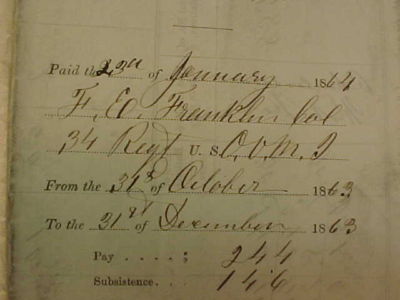 Paid the 23d of January 1864
F. E. Franklin Col
34 Regt U. S. C.V.M.I
From the 31st of October 1863
To the 31st of December 1863
Pay . . . . ; 244
Subsistence . . . 146